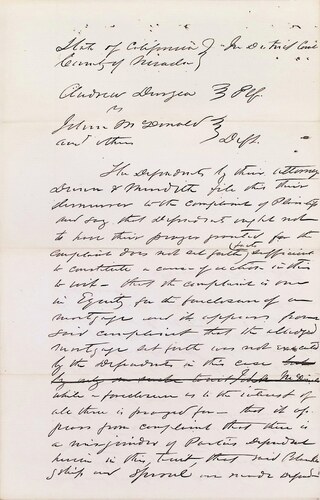 State of California } In District Court
County of Nevada }
Andrew Durgen } Plf.
vs
John McDonald }
and others } Deft.
The Defendants by their attorney
Dunn & Meredith file this their
demurrer to the complaint of Plaintiff
and say that Defendants ought not
to have their prayer granted for the
complaint does not set forth facts sufficient
to constitute a cause of action in this
to wit - that the complaint is one
in Equity for the foreclosure of a
mortgage and it appears from
said complaint that the alledged
mortgage set forth was not executed
by the defendants in this case
by only to wit John McDonald
while a foreclosure as to the interest of
all there is prayed for - that it ap-
pears from complaint that there is
a misjoinder of Parties Defendant
herein in this, to wit, that said
and Sproul are made Defend